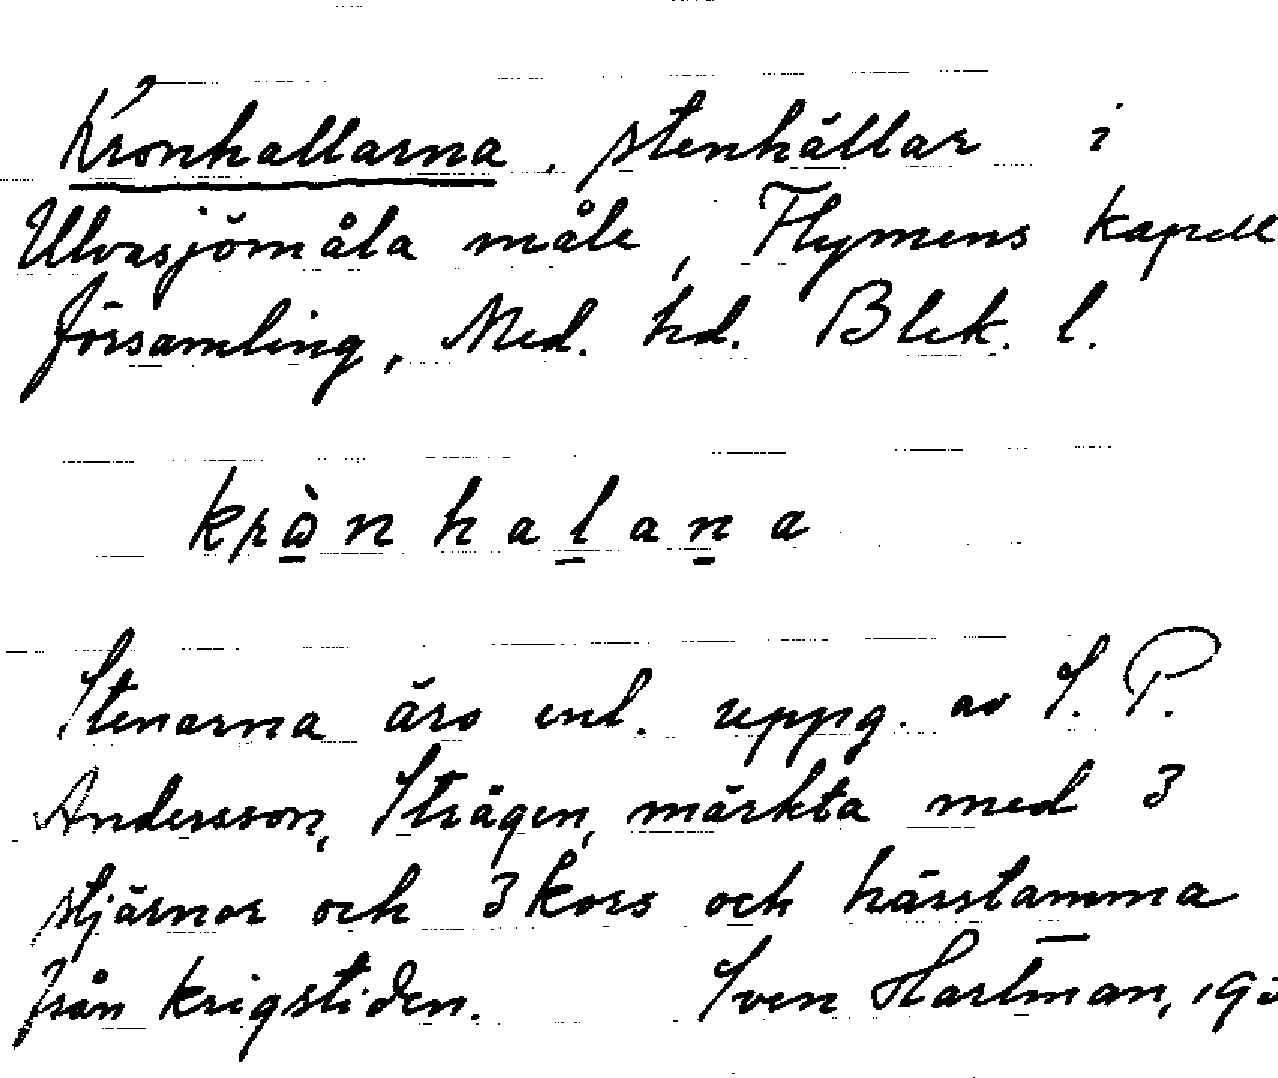 Kronhallarna, stenhällar i
Ulvasjömåla måle, Flymens kapell
församling, Med. hd. Blek. l.
krò̱nhaḻaṉa
Stenarna äro enl. uppg. av S. P.
Andersson, Strågen, märkta med 3
stjärnor och 3 kors och härstamma
från krigstiden. Sven Hartman,